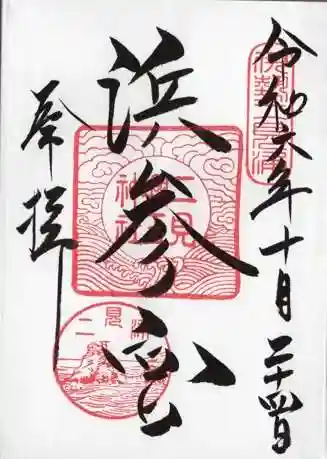 令和六年十月二十四日
浜参宮
奉拝
二見
神社
二見浦